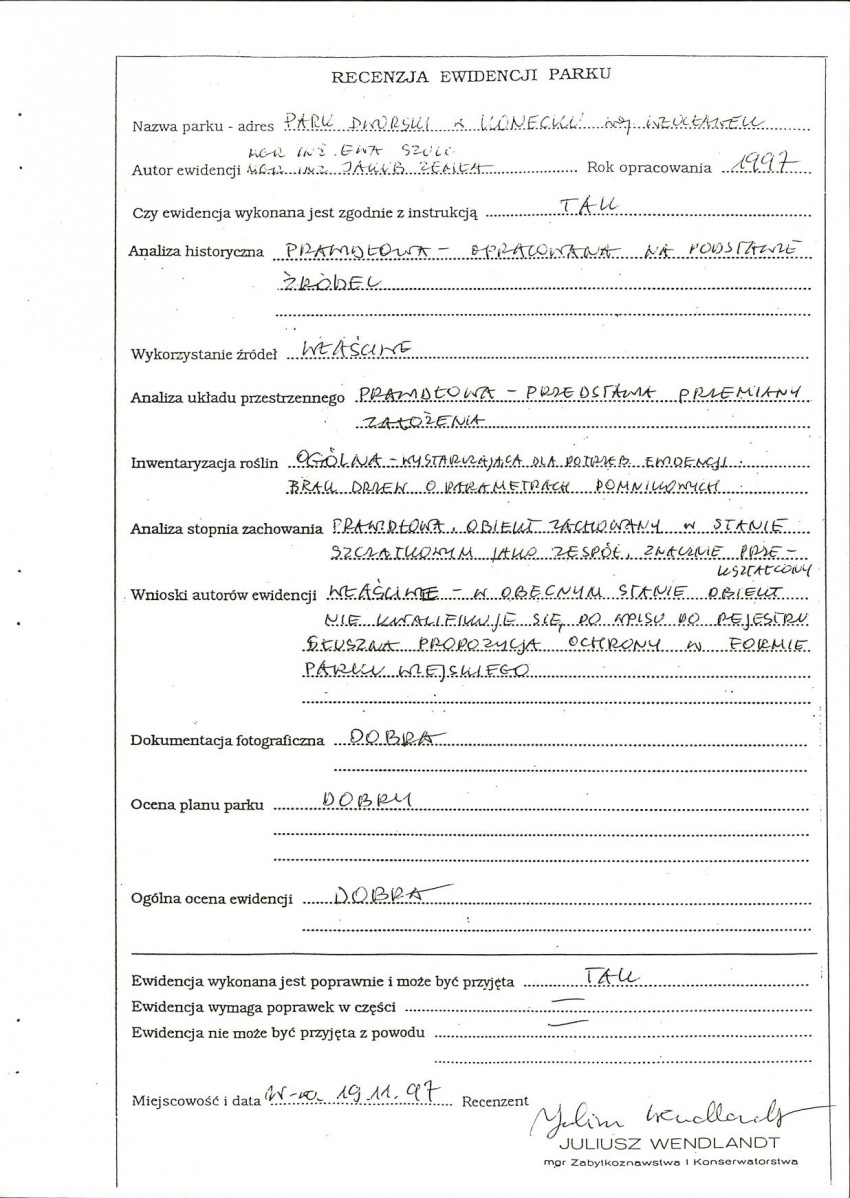 RECENZJA EWIDENCJI PARKU
Nazwa parku - adres PARK DWORSKI w KONECKU woj WŁOCŁAWEK
MGR INŻ. EWA SZULC
Autor ewidencji MGR INŻ JAKUB ZEMŁA Rok opracowania 1997
Czy ewidencja wykonana jest zgodnie z instrukcją TAK
Analiza historyczna PRAWIDŁOWA - OPRACOWANA NA PODSTAWIE
ŹRÓDEŁ
Wykorzystanie źródeł WŁAŚCIWE
Analiza układu przestrzennego PRAWIDŁOWA - PRZEDSTAWIA PRZEMIANY
ZAŁOŻENIA
Inwentaryzacja roślin OGÓLNA - WYSTARCZAJĄCA DLA POTRZEB EWIDENCJI.
BRAK DRZEW O PARAMETRACH POMNIKOWYCH
Analiza stopnia zachowania PRAWIDŁOWA. OBIEKT ZACHOWANY W STANIE
SZCZĄTKOWYM JAKO ZESPÓŁ, ZNACZNIE PRZE-
KSZTAŁCONY
Wnioski autorów ewidencji WŁAŚCIWE - W OBECNYM STANIE OBIEKT
NIE KWALIFIKUJE SIĘ DO WPISU DO REJESTRU
SŁUSZNA PROPOZYCJA OCHRONY W FORMIE
PARKU WIEJSKIEGO
Dokumentacja fotograficzna DOBRA
Ocena planu parku DOBRY
Ogólna ocena ewidencji DOBRA
Ewidencja wykonana jest poprawnie i może być przyjęta TAK
Ewidencja wymaga poprawek w części —
Ewidencja nie może być przyjęta z powodu —
Miejscowość i data W-wa 19.11.97 Recenzent
Juliusz Wendlandt
JULIUSZ WENDLANDT
mgr Zabytkoznawstwa i Konserwatorstwa